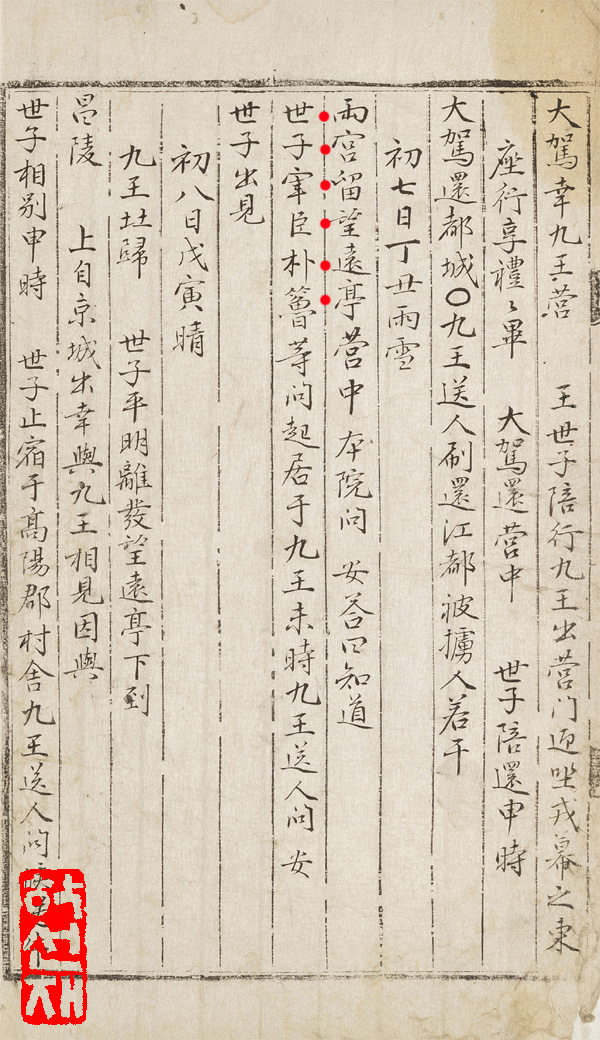 大駕幸九王營 王世子陪行九王出營门迎坐戎幕之東
座行享禮〻畢 大駕還營中 世子陪還申時
大駕還都城○九王送人刷還江都被擄人若干
初七日丁丑雨雪
兩宮留望遠亭營中 本院问 安答曰知道
世子宰臣朴𥶇等问起居于九王未時九王送人问 安
世子出見
初八日戊寅晴
九王北歸 世子平明離發望遠亭下到
昌陵 上自京城出幸與九王相見因與
世子相別申時 世子止宿于高陽郡村舍九王送人问